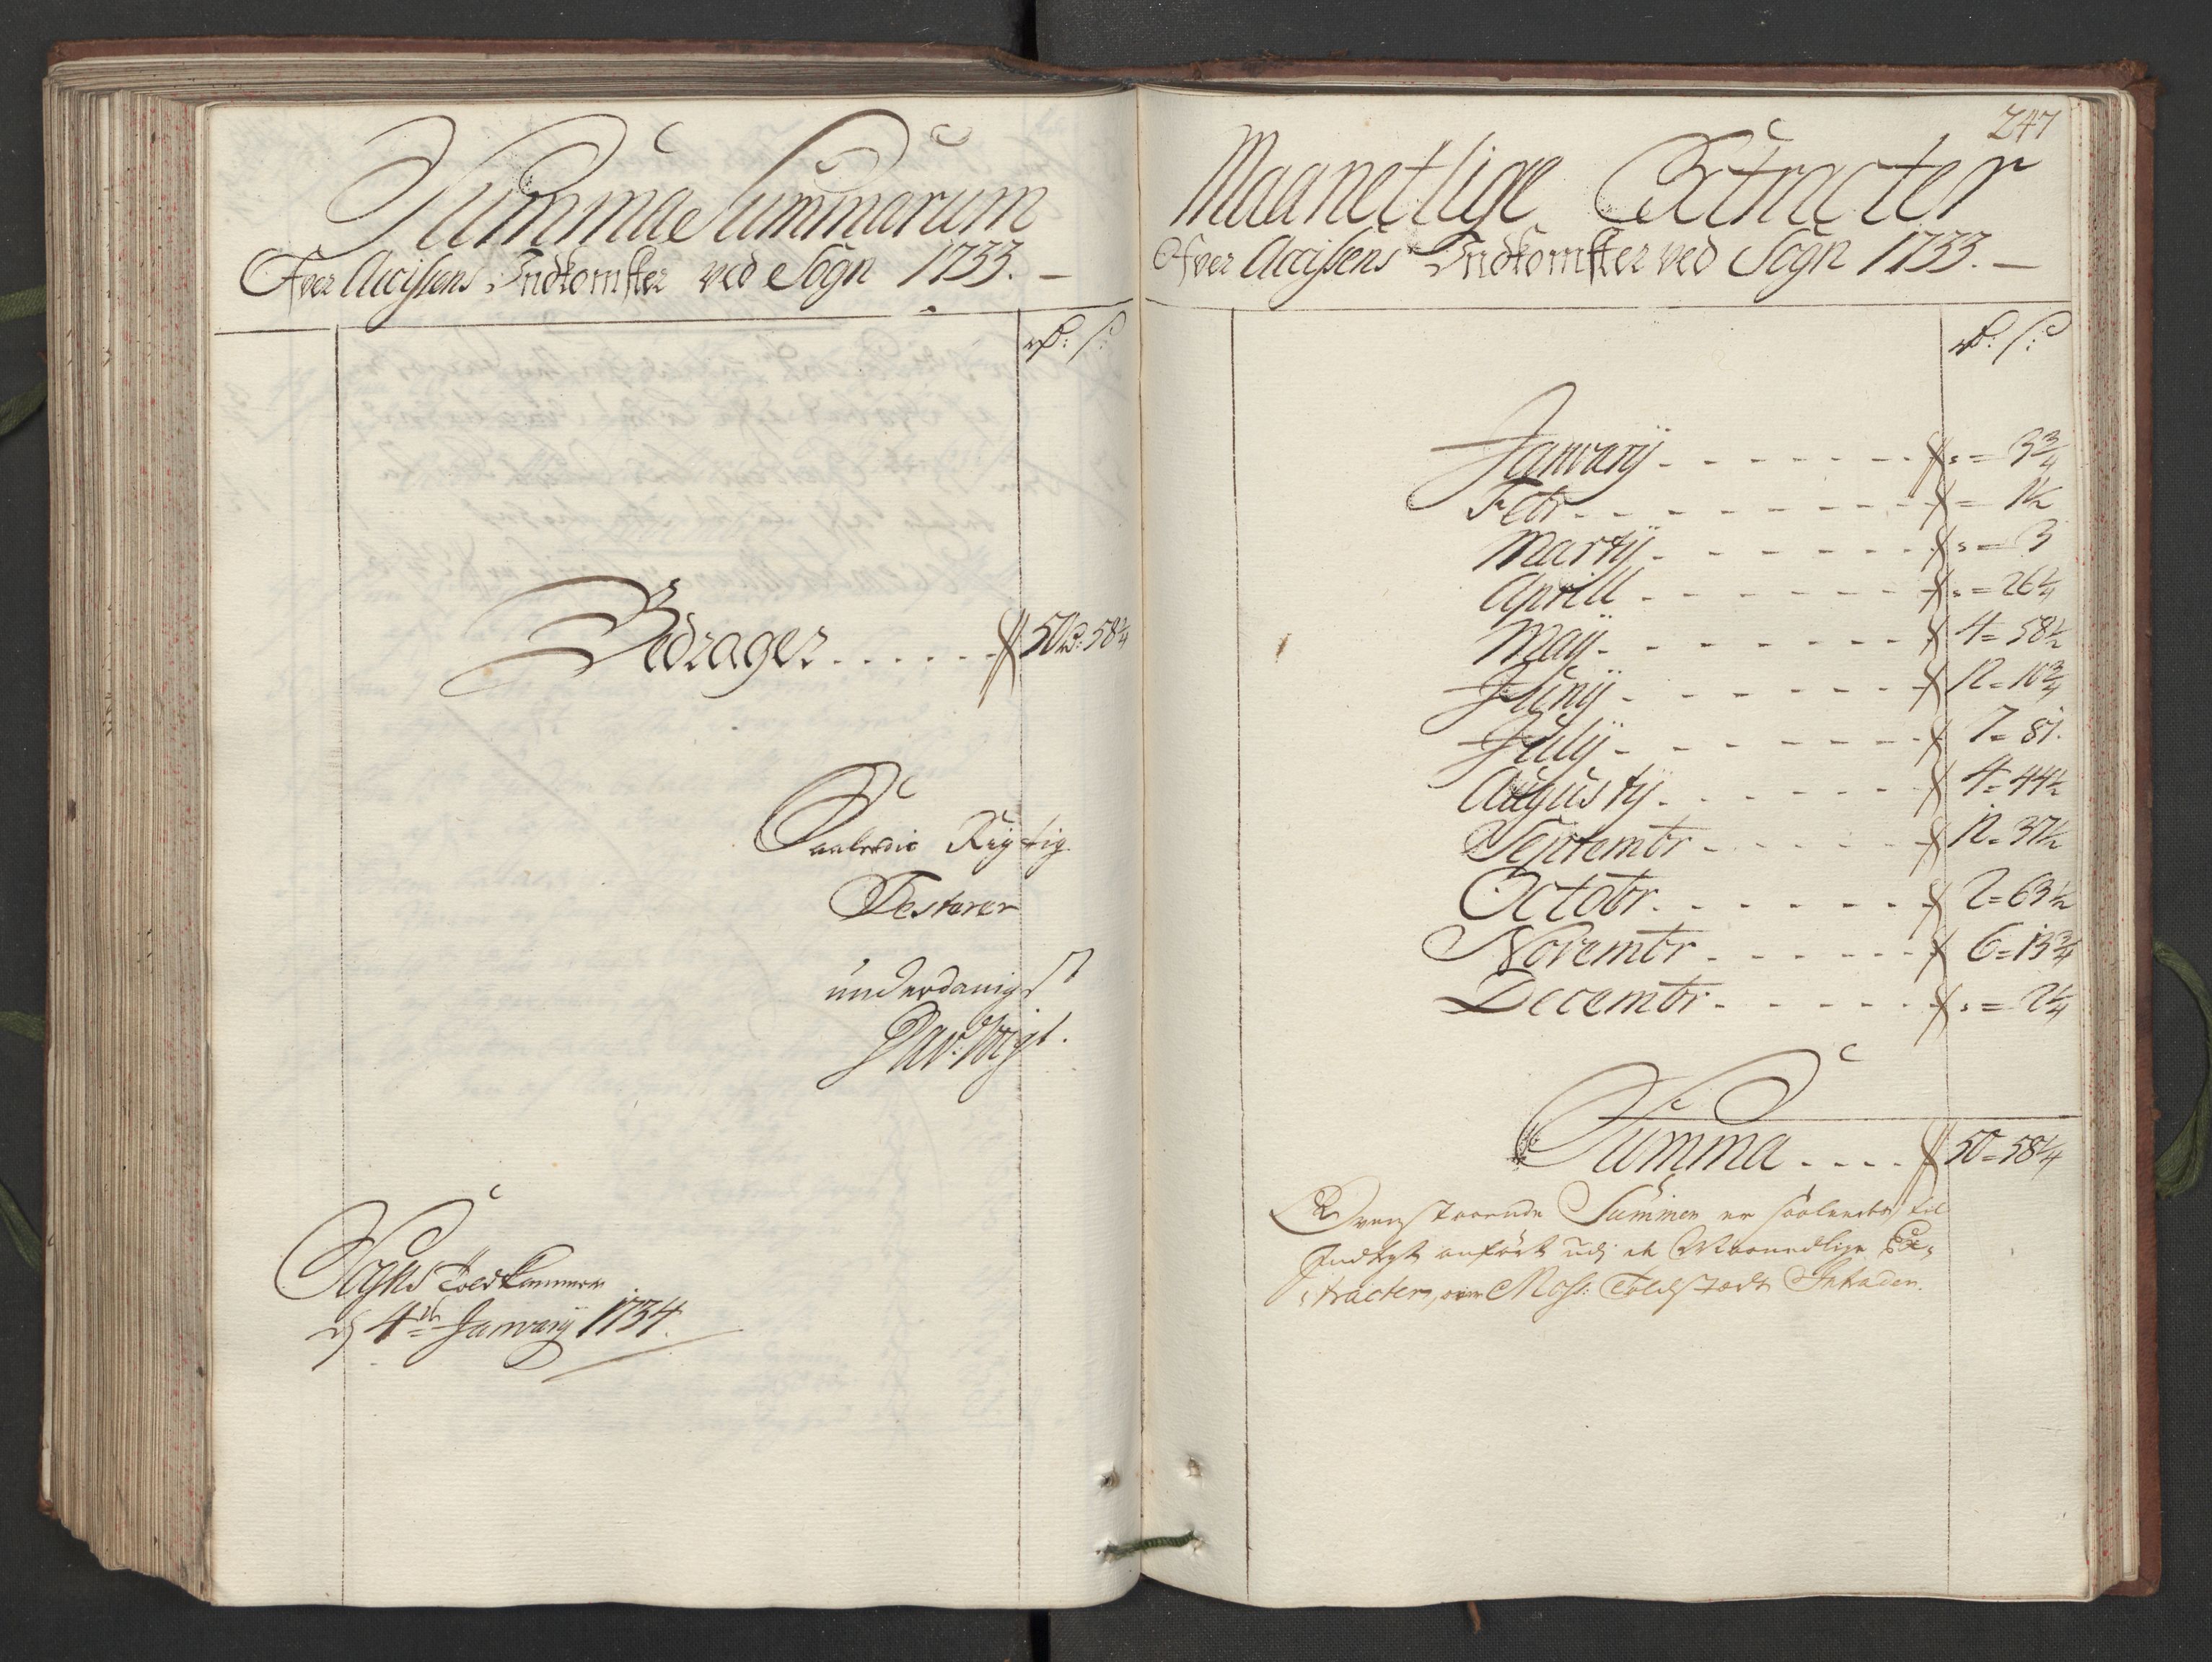 Summa Summarum
Ofver Accisens Indkomster ved Sogn 1733. —
rd: s:
Bedrager . . . . . . 50rd: 58¼
Saaledis Rigtig
Testerer
underdanigst
Dav: Voigt.
Sogns Toldkammer
d 4de Januarij 1734.
247
Maanetlige Extracter
Ofver Accisens Indkomster ved Sogn 1733. —
rd: s:
Januarij - - - - - - - - : = 3¾
Febr - - - - - - - - = 1½
Martij - - - - - - - : = 3
Aprill - - - - - - - : = 26¼
Maij - - - - - - - 4 = 58½
Junij - - - - - - - 12 = 10¾
Julij - - - - - - - 7 = 81.
Augustij - - - - - - - 4 = 44½
Septembr - - - - - - 12 = 37½
Octobr - - - - - - - 2 = 63½
Novembr - - - - - - 6 = 13¾
Decembr - - - - - - : = 2¼
Summa . . . . 50 = 58¼
Ovenstaaende Summen er saaledes til
Indtegt anført udj de Maanedlige Ex-
tracter, over Moss: Toldstæds Intrader.